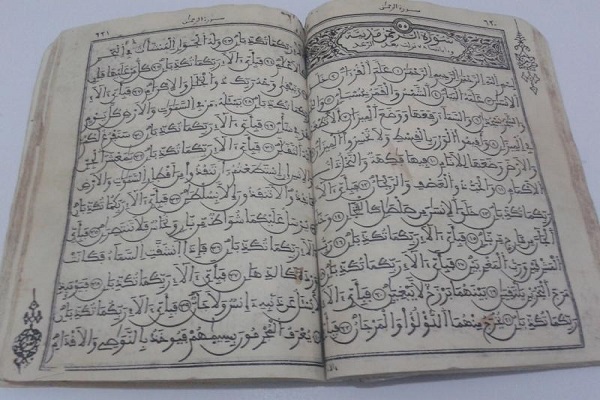 سورة الرحمن ٦٢٠
سورة الرحمن مدنية
نزلت بعد الرعد
بسم الله الرحمن الرحيم الرحمن علم القرءان خلق
الانسن علمه البيان الشمس والقمر بحسبان
والنجم والشجر يسجدان والسماء رفعها ووضع الميزان
الا تطغوا في الميزان واقيموا الوزن بالقسط ولا تخسروا الميزان
والارض وضعها للانام فيها فكهة والنخل ذات
الاكمام والحب ذو العصف والريحان فبأي ءالاء
ربكما تكذبان خلق الانسن من صلصل كالفخار وخلق
الجان من مارج من نار فبأي ءالاء ربكما تكذبان رب
المشرقين ورب المغربين فبأي ءالاء ربكما تكذبان
مرج البحرين يلتقيان بينهما برزخ لا يبغيان فبأي ءالاء
ربكما تكذبان يخرج منهما اللؤلؤ والمرجان فبأي ءالاء
سورة الرحمن ٦٢١
ربكما تكذبان وله الجوار المنشئات في البحر
كالاعلم فبأي ءالاء ربكما تكذبان كل من عليها فان
ويبقى وجه ربك ذو الجلل والاكرام فبأي ءالاء
ربكما تكذبان يسئله من في السموت والارض كل يوم
هو في شأن فبأي ءالاء ربكما تكذبان سنفرغ لكم
ايه الثقلان فبأي ءالاء ربكما تكذبان يمعشر الجن
والانس ان استطعتم ان تنفذوا من اقطار السموت والارض
فانفذوا لا تنفذون الا بسلطن فبأي ءالاء ربكما تكذبان
يرسل عليكما شواظ من نار ونحاس فلا تنتصران فبأي
ءالاء ربكما تكذبان فاذا انشقت السماء فكانت
وردة كالدهان فبأي ءالاء ربكما تكذبان فيومئذ
لا يسئل عن ذنبه انس ولا جان فبأي ءالاء ربكما تكذبان
يعرف المجرمون بسيمهم فيوخذ بالنوصي والاقدام